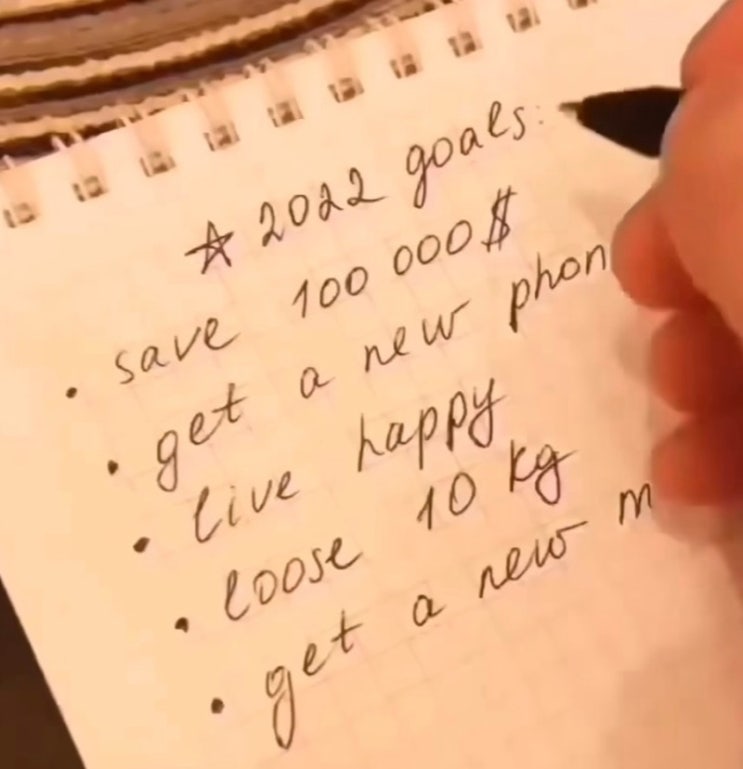 ☆ 2022 goals:
• save 100 000$
• get a new phon
• live happy
• loose 10 kg
• get a new m